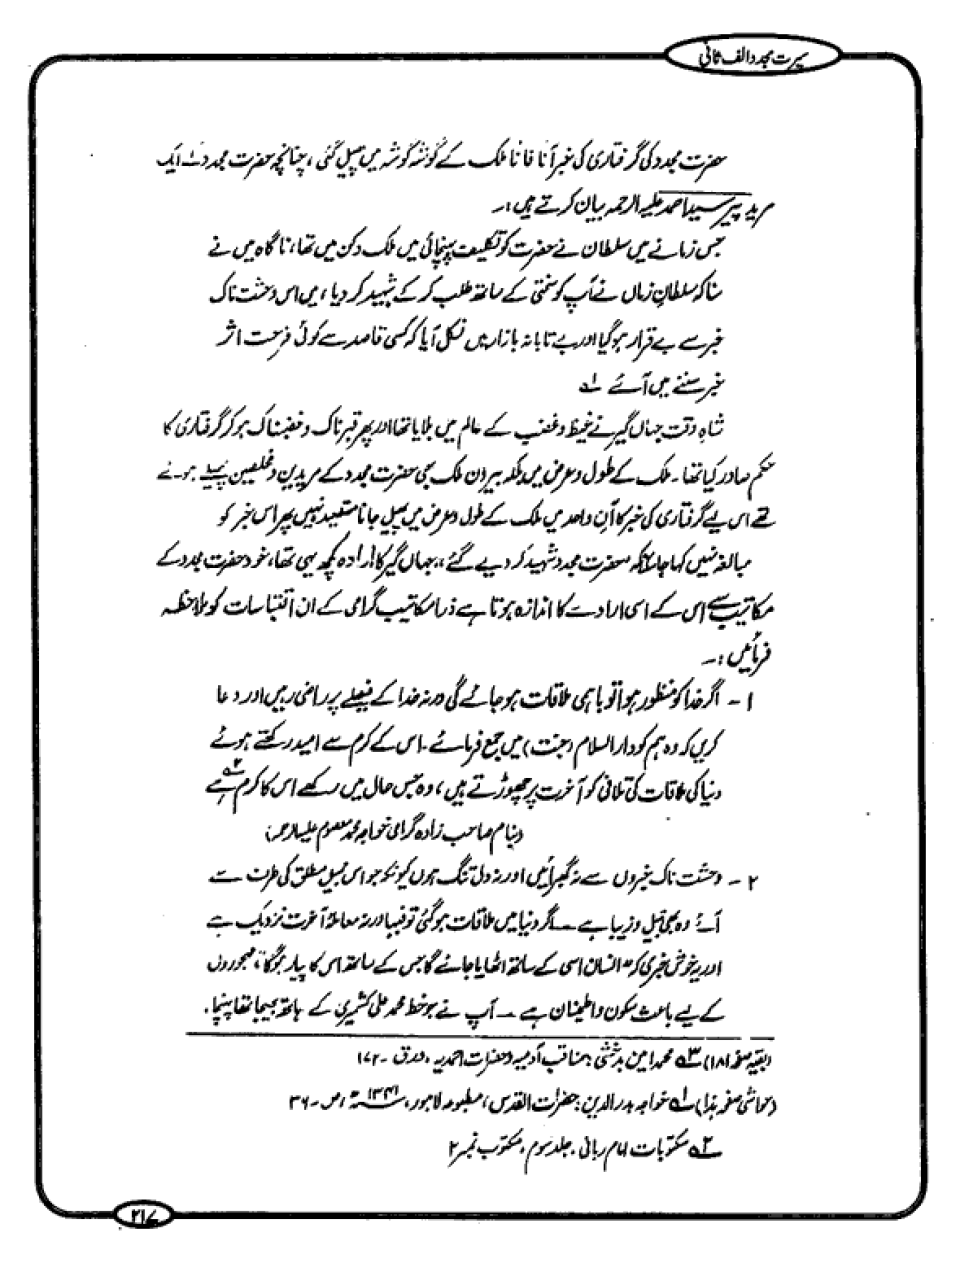 سیرت مجدد الف ثانی
حضرت مجدد کی گرفتاری کی خبر آناً فاناً ملک کے گوشہ گوشہ میں پھیل گئی ، چنانچہ حضرت مجدد کے ایک
مرید پیر سید احمد علیہ الرحمہ بیان کرتے ہیں :۔
جس زمانے میں سلطان نے حضرت کو تکلیف پہنچائی میں ملک دکن میں تھا، ناگاہ میں نے
سنا کہ سلطانِ زماں نے آپ کو سختی کے ساتھ طلب کر کے شہید کر دیا ، میں اس وحشت ناک
خبر سے بے قرار ہو گیا اور بے تابانہ بازار میں نکل آیا کہ کسی قاصد سے کوئی فرحت اثر
خبر سننے میں آئے ۱؎
شاہِ وقت جہاں گیر نے غیظ و غضب کے عالم میں بلایا تھا اور پھر قہرناک و غضبناک ہو کر گرفتاری کا
حکم صادر کیا تھا ۔ ملک کے طول و عرض میں بلکہ بیرون ملک بھی حضرت مجدد کے مریدین و مخلصین پھیلے ہوئے
تھے اس لیے گرفتاری کی خبر کا آنِ واحد میں ملک کے طول و عرض میں پھیل جانا مستبعد نہیں پھر اس خبر کو
مبالغہ نہیں کہا جا سکتا کہ "حضرت مجدد شہید کر دیے گئے"، جہاں گیر کا ارادہ کچھ یہی تھا، خود حضرت مجدد کے
مکاتیب سے اس کے اسی ارادے کا اندازہ ہوتا ہے ذرا مکاتیب گرامی کے ان اقتباسات کو ملاحظہ
فرمائیں :۔
۱ - اگر خدا کو منظور ہوا تو باہمی ملاقات ہو جائے گی ورنہ خدا کے فیصلے پر راضی رہیں اور دعا
کریں کہ وہ ہم کو دارالسلام (جنت) میں جمع فرمائے ۔ اس کے کرم سے امید رکھتے ہوئے
دنیا کی ملاقات کی تلافی کو آخرت پر چھوڑتے ہیں ، وہ جس حال میں رکھے اس کا کرم ہے ۲؎
(بنام صاحب زادہ گرامی خواجہ محمد معصوم علیہ الرحمہ)
۲ - وحشت ناک خبروں سے نہ گھبرائیں اور نہ دل تنگ ہوں کیونکہ جو اس جمیل مطلق کی طرف سے
آئے وہ بھی جمیل و زیبا ہے ــ اگر دنیا میں ملاقات ہو گئی تو فبہا ورنہ معاملۂ آخرت نزدیک ہے
اور یہ خوش خبری کہ "انسان اسی کے ساتھ اٹھایا جائے گا جس کے ساتھ اس کا پیار ہوگا"، مہجوروں
کے لیے باعث سکون و اطمینان ہے ــ آپ نے جو خط محمد علی کشمیری کے ہاتھ بھیجا تھا پہنچا .
(بقیہ صفحہ ۱۸۱) ۳؎ محمد امین بدخشی : مناقب آدمیہ و حضرات احمدیہ ، ورق ۔ ۱۷۲
(حواشی صفحہ ہذا) ۱؎ خواجہ بدرالدین : حضرات القدس ، مطبوعہ لاہور ، ۱۳۴۱ھ ، ص ۔ ۳۶
۲؎ مکتوبات امام ربانی ، جلد سوم ، مکتوب نمبر ۲
۲۱۷